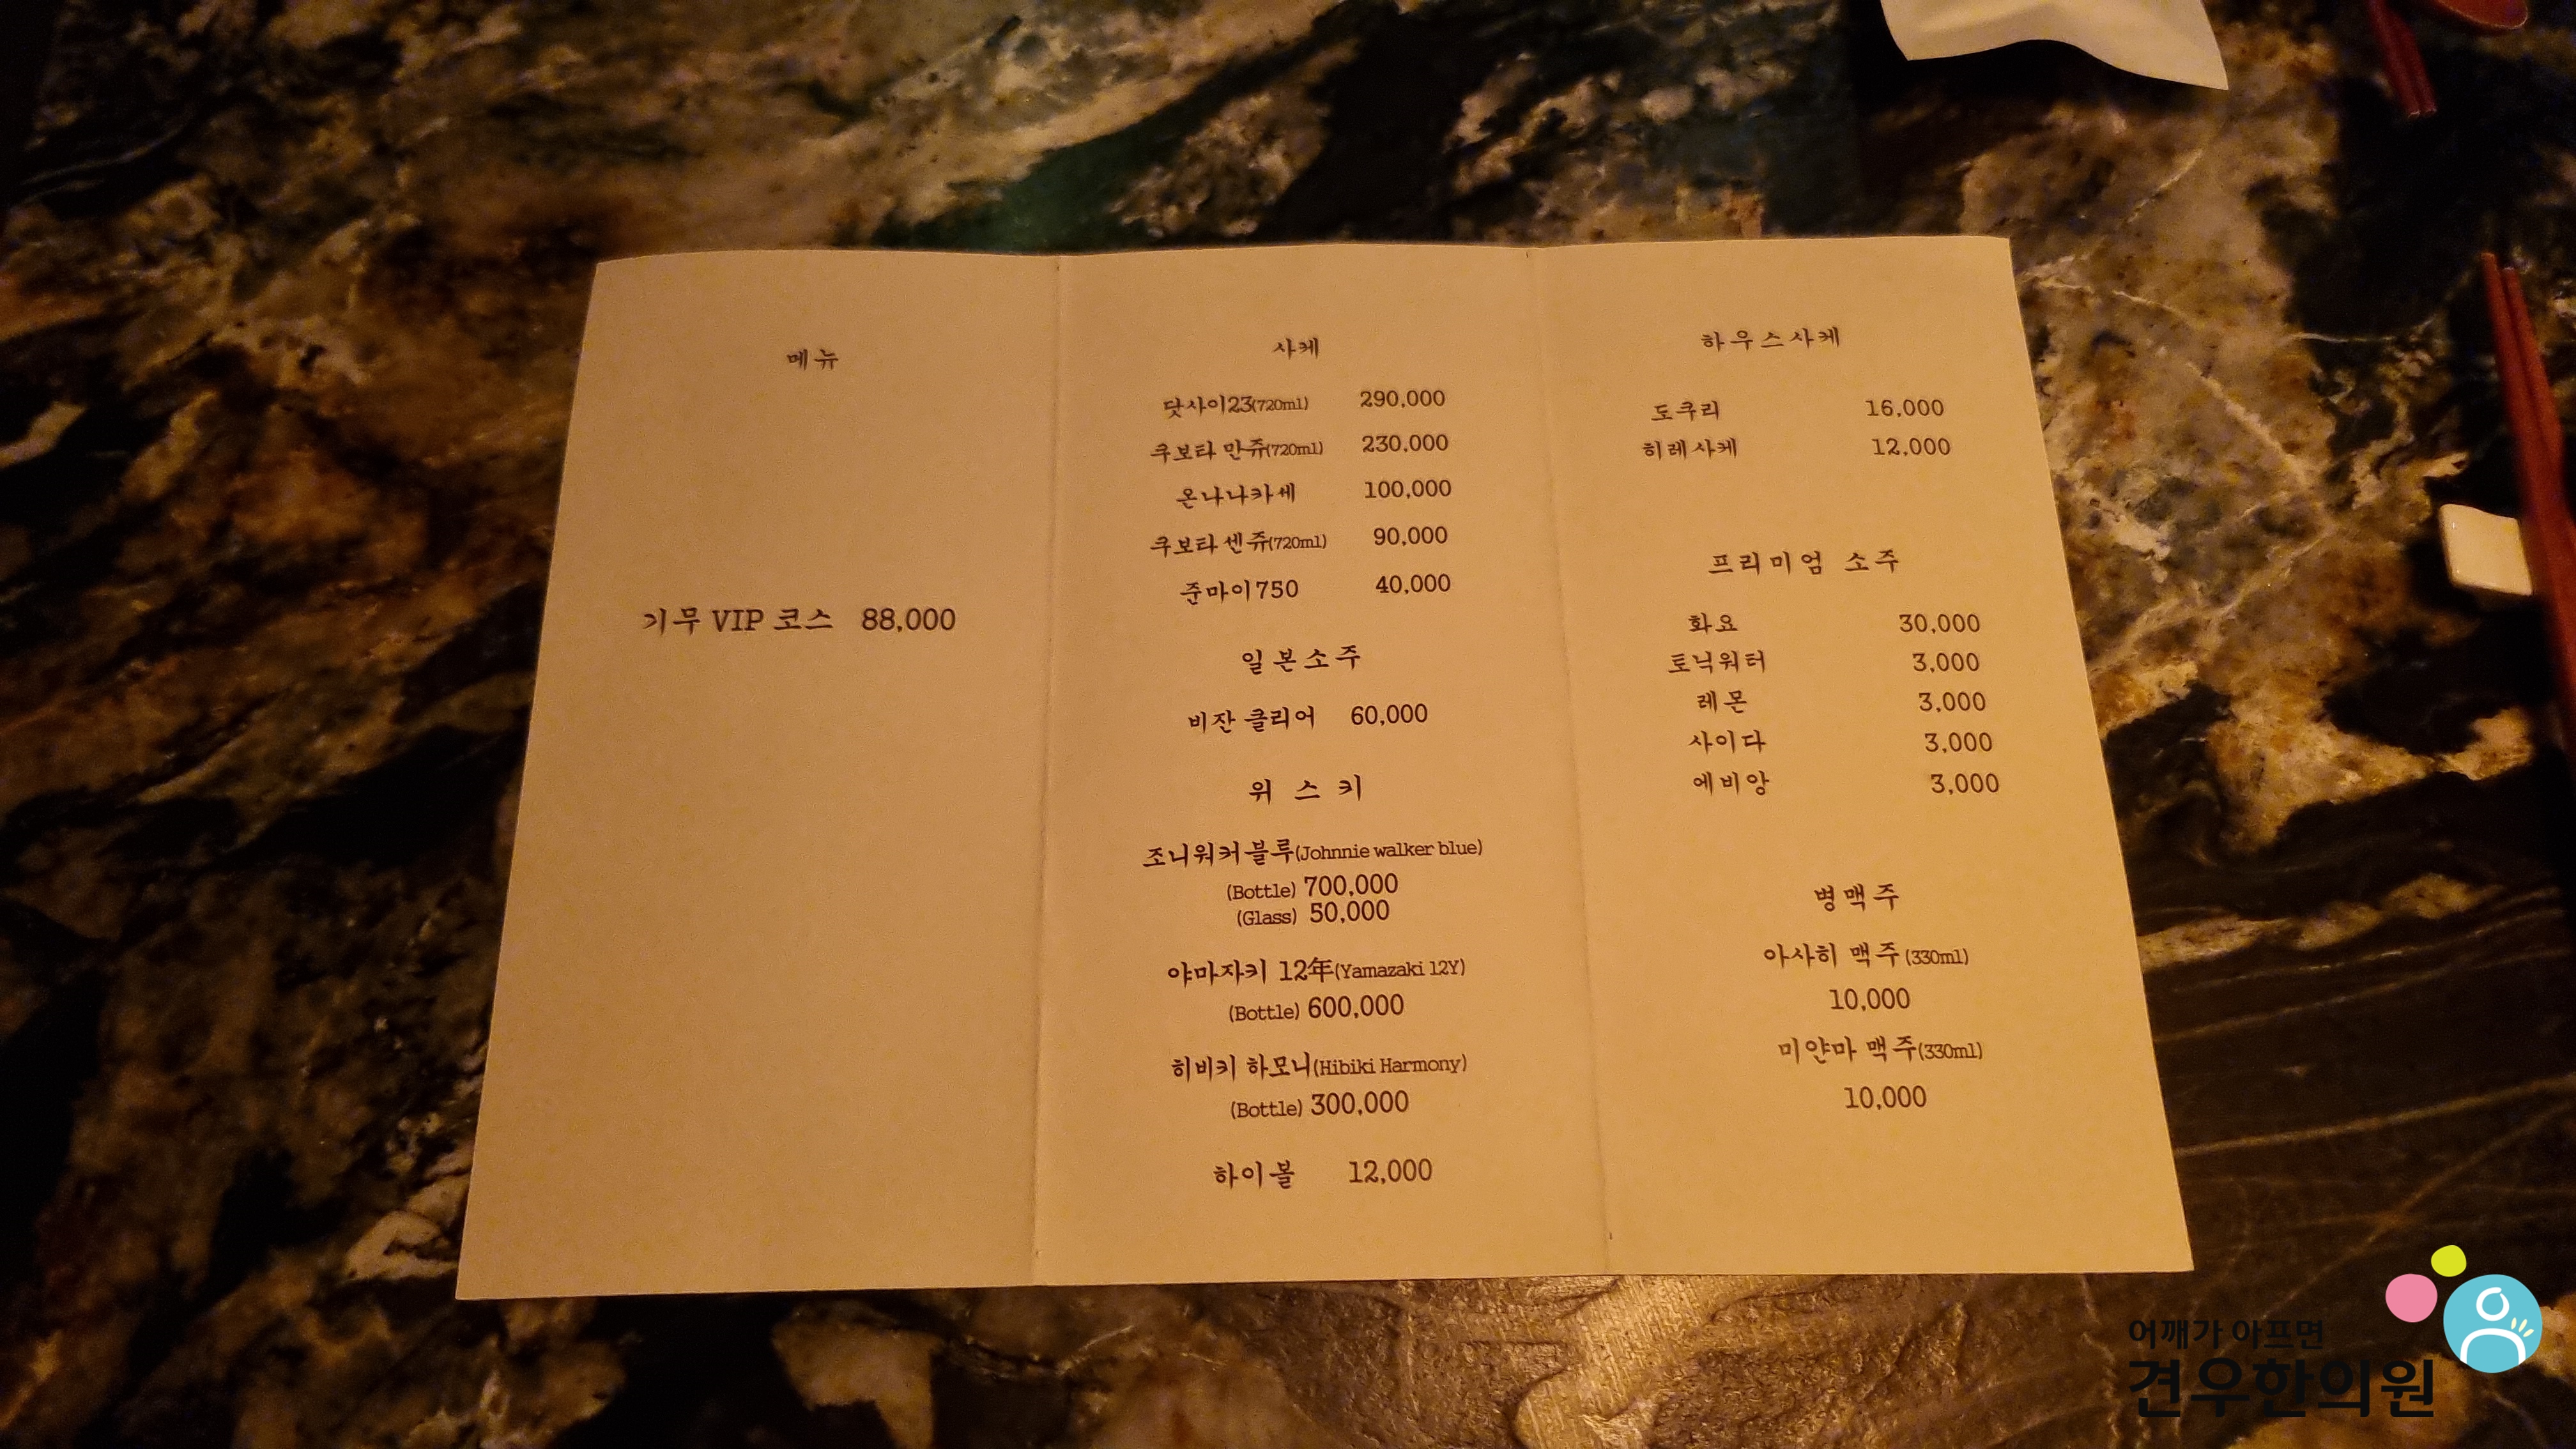 메뉴
기무 VIP 코스 88,000
사케
닷사이23(720ml) 290,000
쿠보타 만쥬(720ml) 230,000
온나나카세 100,000
쿠보타 센쥬(720ml) 90,000
준마이750 40,000
일본소주
비잔 클리어 60,000
위스키
조니워커블루(Johnnie walker blue)
(Bottle) 700,000
(Glass) 50,000
야마자키 12年(Yamazaki 12Y)
(Bottle) 600,000
히비키 하모니(Hibiki Harmony)
(Bottle) 300,000
하이볼 12,000
하우스사케
도쿠리 16,000
히레사케 12,000
프리미엄 소주
화요 30,000
토닉워터 3,000
레몬 3,000
사이다 3,000
에비앙 3,000
병맥주
아사히 맥주(330ml)
10,000
미얀마 맥주(330ml)
10,000
어깨가 아프면
견우한의원